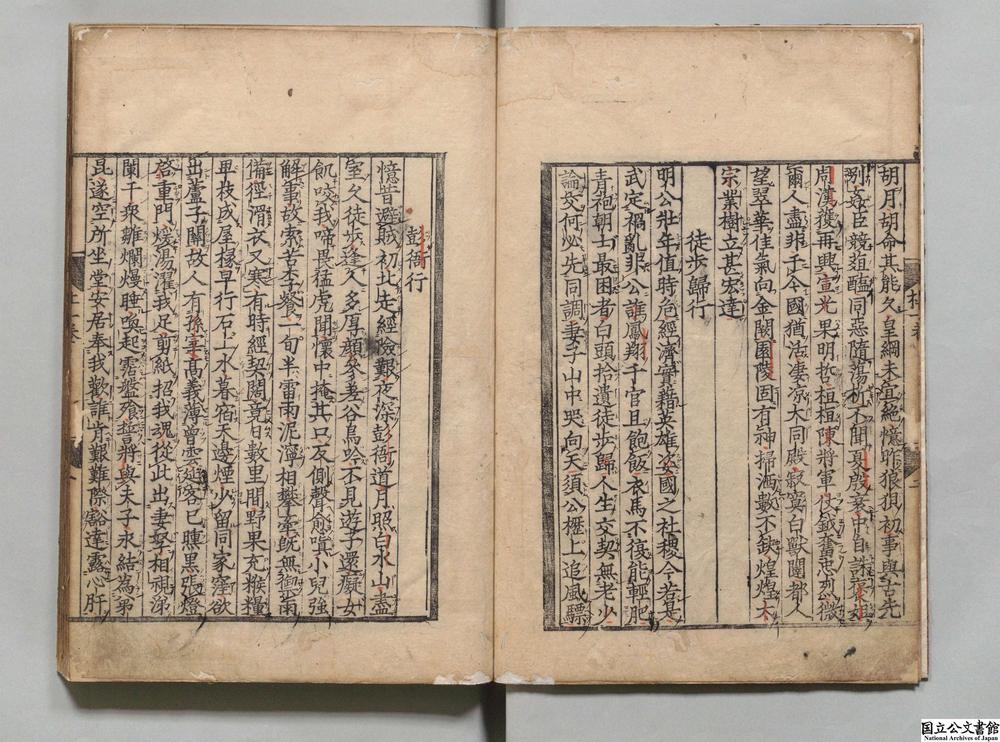 胡月胡命其能久皇綱未宜絶憶昨狼狽初事與古先
別姦臣競葅醢同惡隨蕩析不聞夏殷衰中自誅褒妲
周漢獲再興宣光果明哲桓桓陳將軍仗鉞奮忠烈微
爾人盡非于今國猶活凄凉大同殿寂寞白獸闥都人
望翠華佳氣向金闕園陵固有神掃洒數不缺煌煌太
宗業樹立甚宏達
徒步歸行
明公壯年值時危經濟實藉英雄姿國之社稷今若是
武定禍亂非公誰鳳翔千官且飽飯衣馬不復能輕肥
青袍朝士最困者白頭拾遺徒步歸人生交契無老少
論交何必先同調妻子山中哭向天須公櫪上追風驃
杜一卷
彭衙行
憶昔避賊初北走經險艱夜深彭衙道月照白水山盡
室久徒步逢人多厚顔參差谷鳥吟不見遊子還癡女
飢咬我啼畏猛虎聞懷中掩其口反側聲愈嗔小兒強
解事故索苦李餐一旬半雷雨泥濘相攀牽旣無御雨
備徑滑衣又寒有時經契闊竟日數里間野果充糇糧
卑枝成屋椽早行石上水暮宿天邊煙少留同家窪欲
出蘆子關故人有孫宰高義薄曾雲延客已曛黑張燈
啓重門煖湯濯我足剪紙招我魂從此出妻孥相視涕
闌干衆雛爛熳睡喚起霑盤飧誓將與夫子永結為弟
昆遂空所坐堂安居奉我歡誰肯艱難際豁達露心肝
國立公文書館
National Archives of Japan